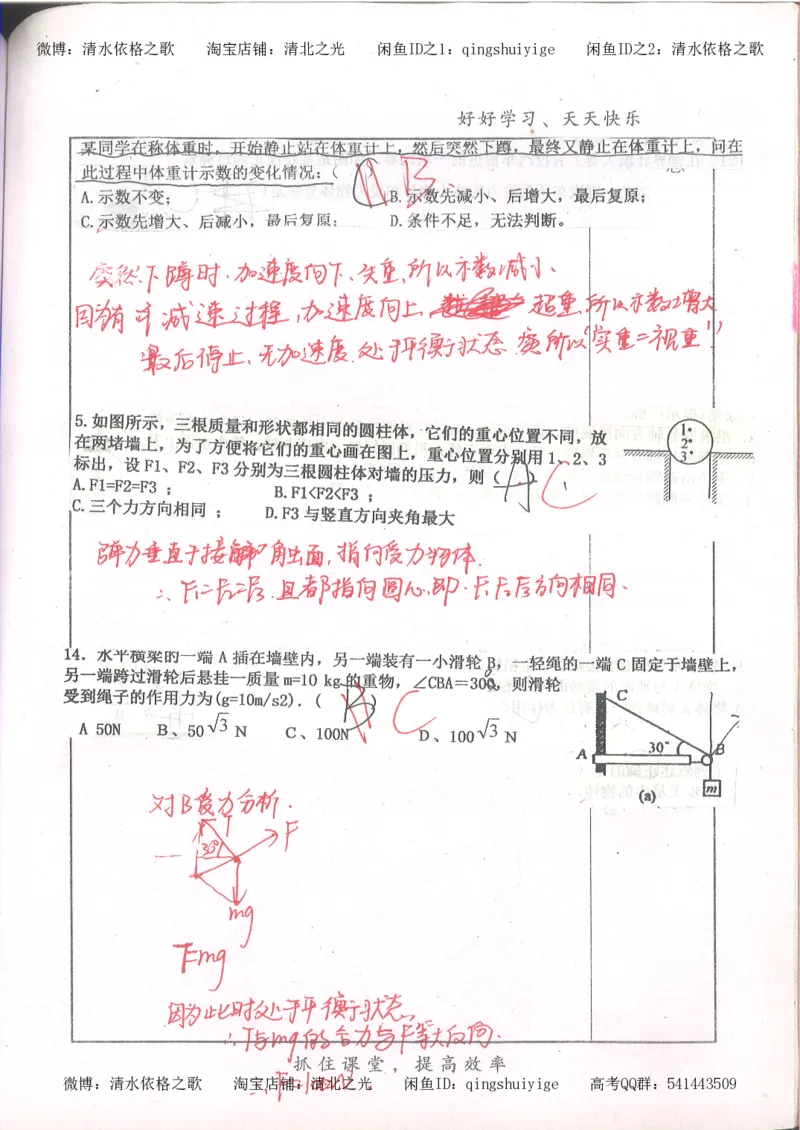 微博：清水依格之歌 淘宝店铺：清北之光 闲鱼ID之1：qingshuiyige 闲鱼ID之2：清水依格之歌
好好学习、天天快乐
某同学在称体重时，开始静止站在体重计上，然后突然下蹲，最终又静止在体重计上，问在
此过程中体重计示数的变化情况：（ B
A.示数不变； B.示数先减小、后增大，最后复原；
C.示数先增大、后减小，最后复原； D.条件不足，无法判断。
突然下蹲时，加速度向下、失重，所以示数减小、
因为有 减速过程，加速度向上， 超重，所以示数增大
最后停止、无加速度，处于平衡状态 所以“实重=视重”！
5.如图所示，三根质量和形状都相同的圆柱体，它们的重心位置不同，放
在两堵墙上，为了方便将它们的重心画在图上，重心位置分别用 1、2、3
标出，设 F1、F2、F3 分别为三根圆柱体对墙的压力，则（ A ） C
A.F1=F2=F3 ； B.F1<F2<F3 ；
C.三个力方向相同 ； D.F3 与竖直方向夹角最大
1
2
3
弹力垂直于接触 面，指向受力物体.
∴ F1=F2=F3，且都指向圆心，即 F1 F2 F3方向相同.
14．水平横梁的一端 A 插在墙壁内，另一端装有一小滑轮 B，一轻绳的一端 C 固定于墙壁上，
另一端跨过滑轮后悬挂一质量 m=10 kg 的重物，∠CBA＝30°，则滑轮
受到绳子的作用力为(g=10m/s2)．（ B ） C
A 50N B、50√3 N C、100N D、100√3 N
C
A 30° B
m
(a)
对B受力分析.
T
F
30°
mg
T=mg
因为此时处于平衡状态，
∴T与mg的合力与F等大反向.
抓住课堂，提高效率
∴F=100N
微博：清水依格之歌 淘宝店铺：清北之光 闲鱼ID：qingshuiyige 高考QQ群：541443509